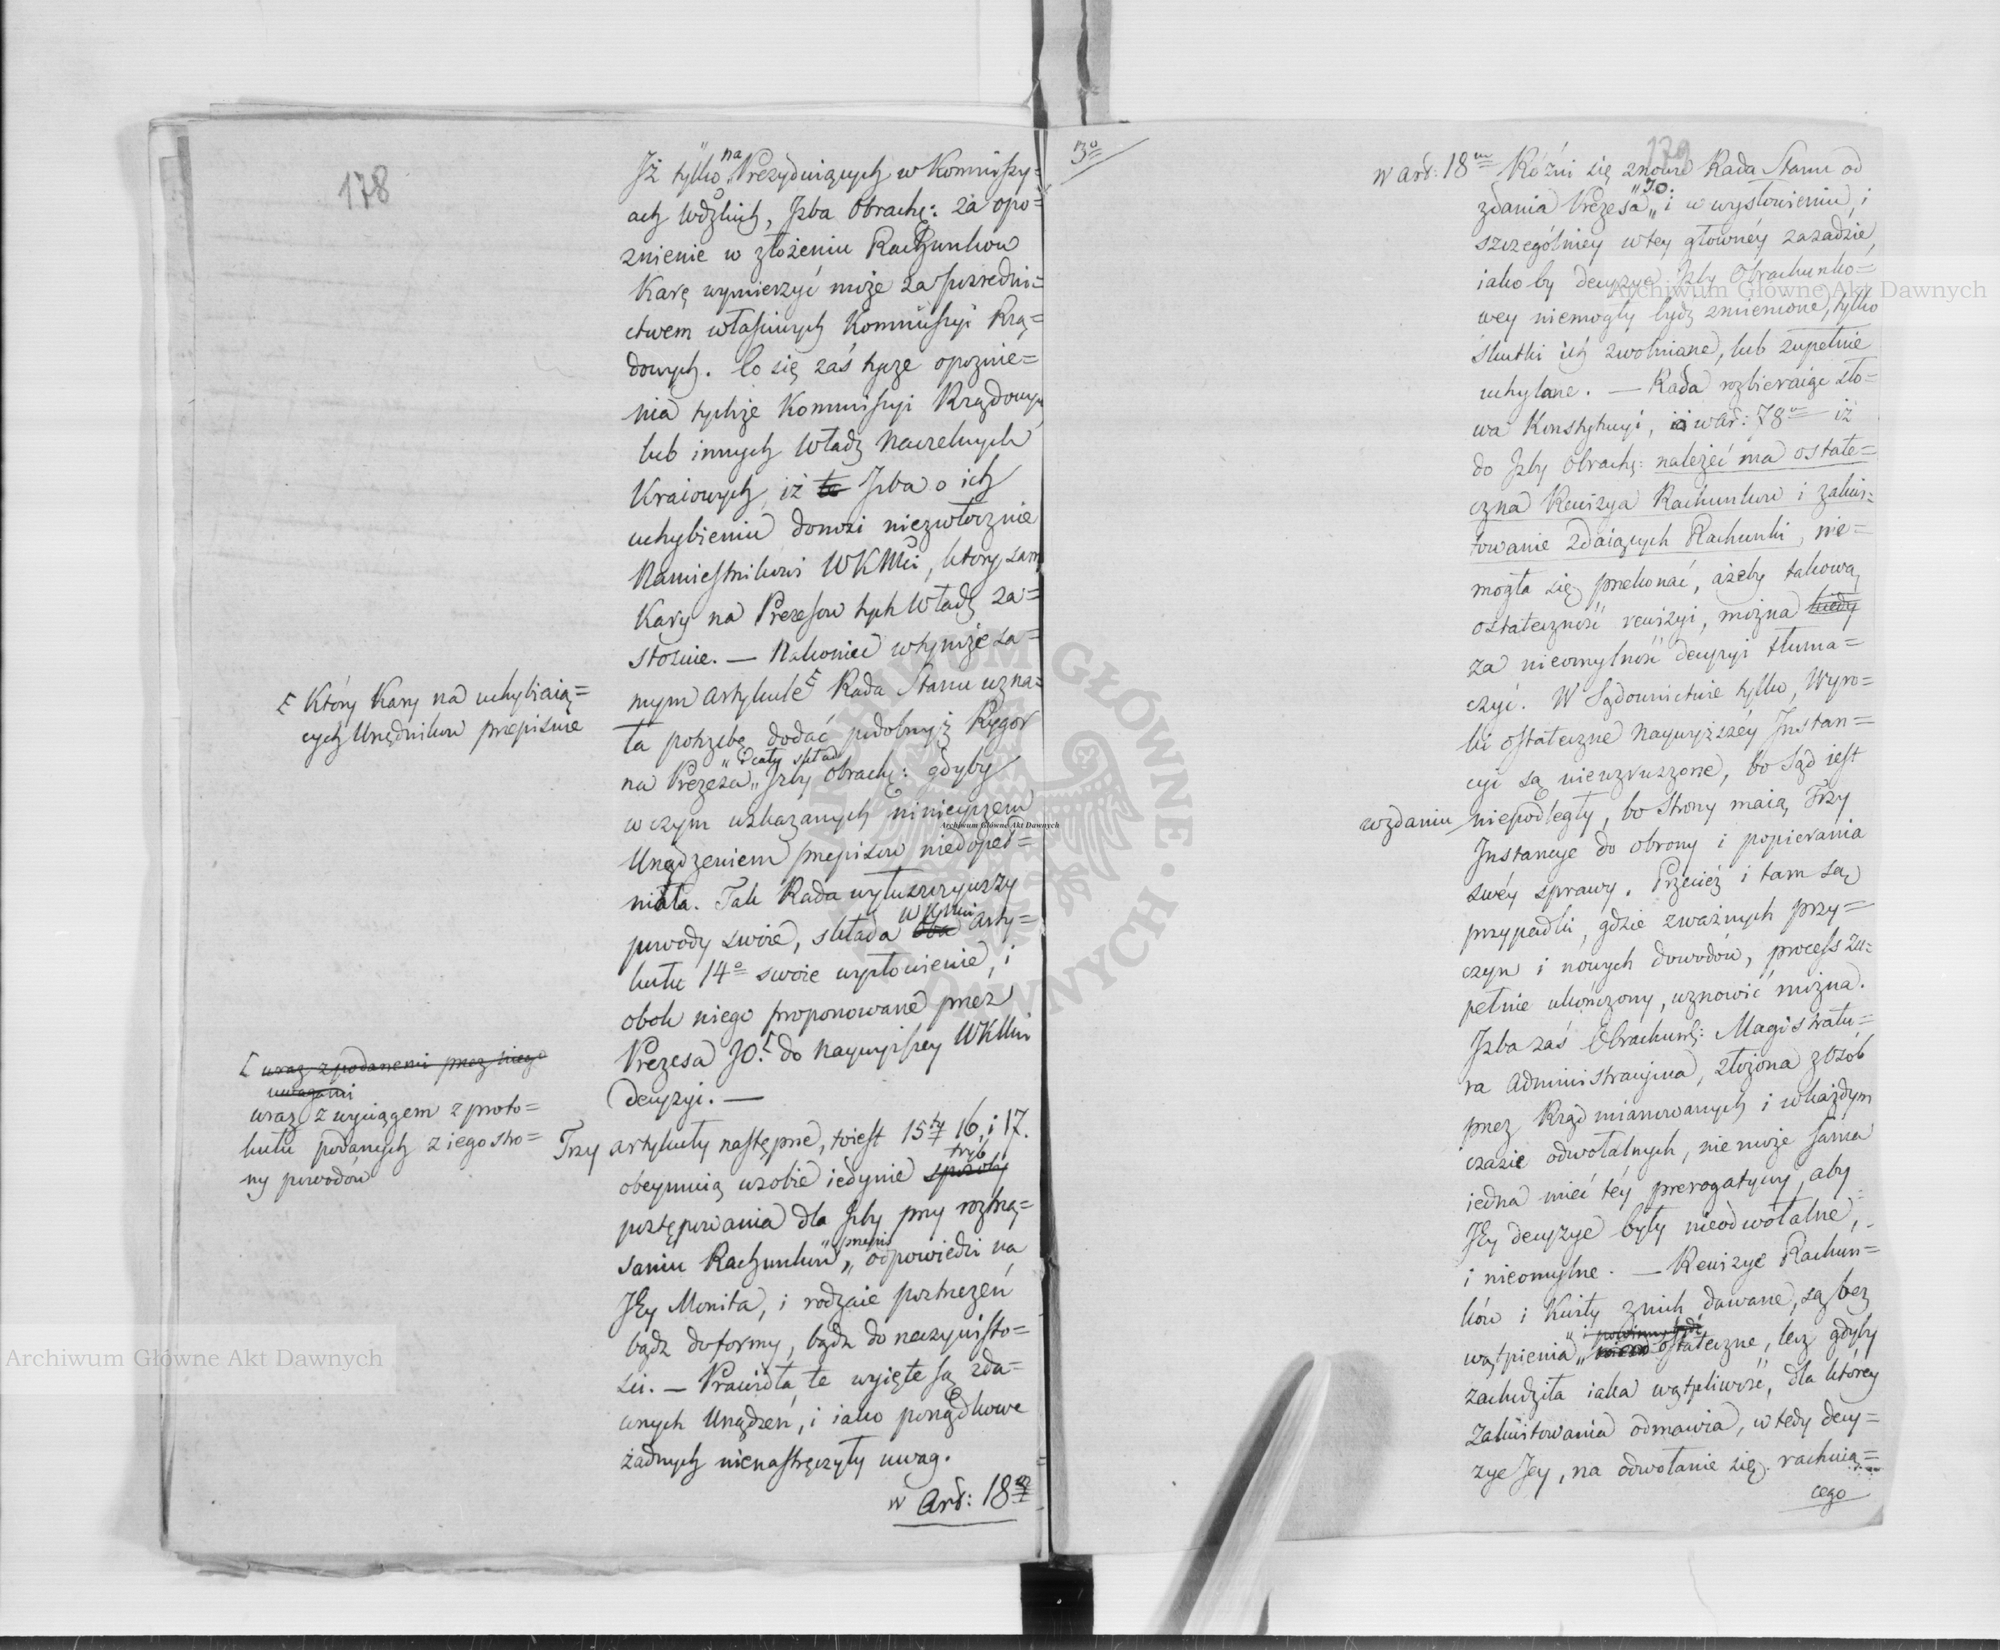 178
Iż tylko na Prezyduiących w Kommissy=
ach Wdzkich, Izba Obrach: za opo=
znienie w złożeniu Rachunkow
Karę wymierzyć może za pośredni=
ctwem właściwych Kommissyi Rzą=
dowych. Co się zaś tycze opoznie=
nia tychże Kommissyi Rządowych
lub innych Władz Naczelnych
Kraiowych, iż Izba o ich
uchybieniu donosi niezwłocznie
Namiestnikowi WKMci, ktory sam
Kary na Prezesow tych Władz za=
stosuie. — Nakoniec w tymże sa=
mym artykule Rada Stanu uzna=
ła potrzebę dodać podobnyż Rygor
na Prezesa „i cały skład Izby Obrach: gdyby
w czym wskazanych ninieyszem
Urządzeniem przepisow niedopeł=
niała. Tak Rada wyłuszczywszy
powody swoie, składa w tymi arty=
kułu 14o swoie wysłowienie, i
obok niego proponowane przez
Prezesa JO. do Naywyższey WKMci
decyzyi. —
Trzy artykuły następne, to iest 15ty 16. i 17.
obeymuią w sobie iedynie sposoby tryb
postępowania dla Izby przy roztrzą=
saniu Rachunkow, „przepis odpowiedzi na
Jey Monita, i rodzaie postrzeżeń
bądź do formy, bądź do rzeczywisto=
ści. — Prawidła te wyięte są z da=
wnych Urządzeń, i iako porządkowe
żadnych nienastręczyły uwag.
w Art: 18m
Ⱶ Który Kary na uchybiaią=
cych Urzędnikow przepisuie
wraz z podanemi przez niego
uwagami
wraz z wyciągem z proto=
kułu podanych z iego stro=
ny powodów
3o
179
w Art: 18m Rózni się znowu Rada Stanu od
zdania Prezesa „JO. i w wysłowieniu, i
szczególniey w tey główney zasadzie,
iako by decyzye Izby Obrachunko=
wey niemogły bydz zmienione, tylko
skutki ich zwolniane, lub zupełnie
uchylane. — Rada rozbieraiąc sło=
wa Konstytucyi, w ar: 78m iż
do Izby Obrach: należeć ma ostate=
czna Rewizya Rachunkow i zakwi=
towanie zdaiących Rachunki, nie=
mogła się przekonać, ażeby takową
ostateczność rewizyi, można kiedy
za nieomylność decyzyi tłuma=
czyć. W Sądownictwie tylko, Wyro=
ki ostateczne Naywyższéy Instan=
cyi są niewzruszone, bo Sąd iest
w zdaniu niepodległy, bo Strony maią Trzy
Instancye do obrony i popierania
swéy sprawy. Przecież i tam są
przypadki, gdzie z ważnych przy=
czyn i nowych dowodów, process zu=
pełnie ukończony, wznowić można.
Izba zaś Obrachunk: Magistratu=
ra Administracyina, złożona z Osób
przez Rząd mianowanych i w każdym
czasie odwołalnych, nie może sama
iedna mieć téy prerogatywy, aby
Jey decyzye były nieodwołalne,
i nieomylne. — Rewizye Rachun=
ków i Kwity z nich dawane, są bez
wątpienia „i powinny bydź ostateczne, lecz gdyby
zachodziła iaka wątpliwość, dla którey
zakwitowania odmawia, w tedy decy=
zye Jey, na odwołanie się rachuią=
cego
Archiwum Główne Akt Dawnych
Archiwum Główne Akt Dawnych
Archiwum Główne Akt Dawnych
ARCHIWUM GŁÓWNE AKT DAWNYCH